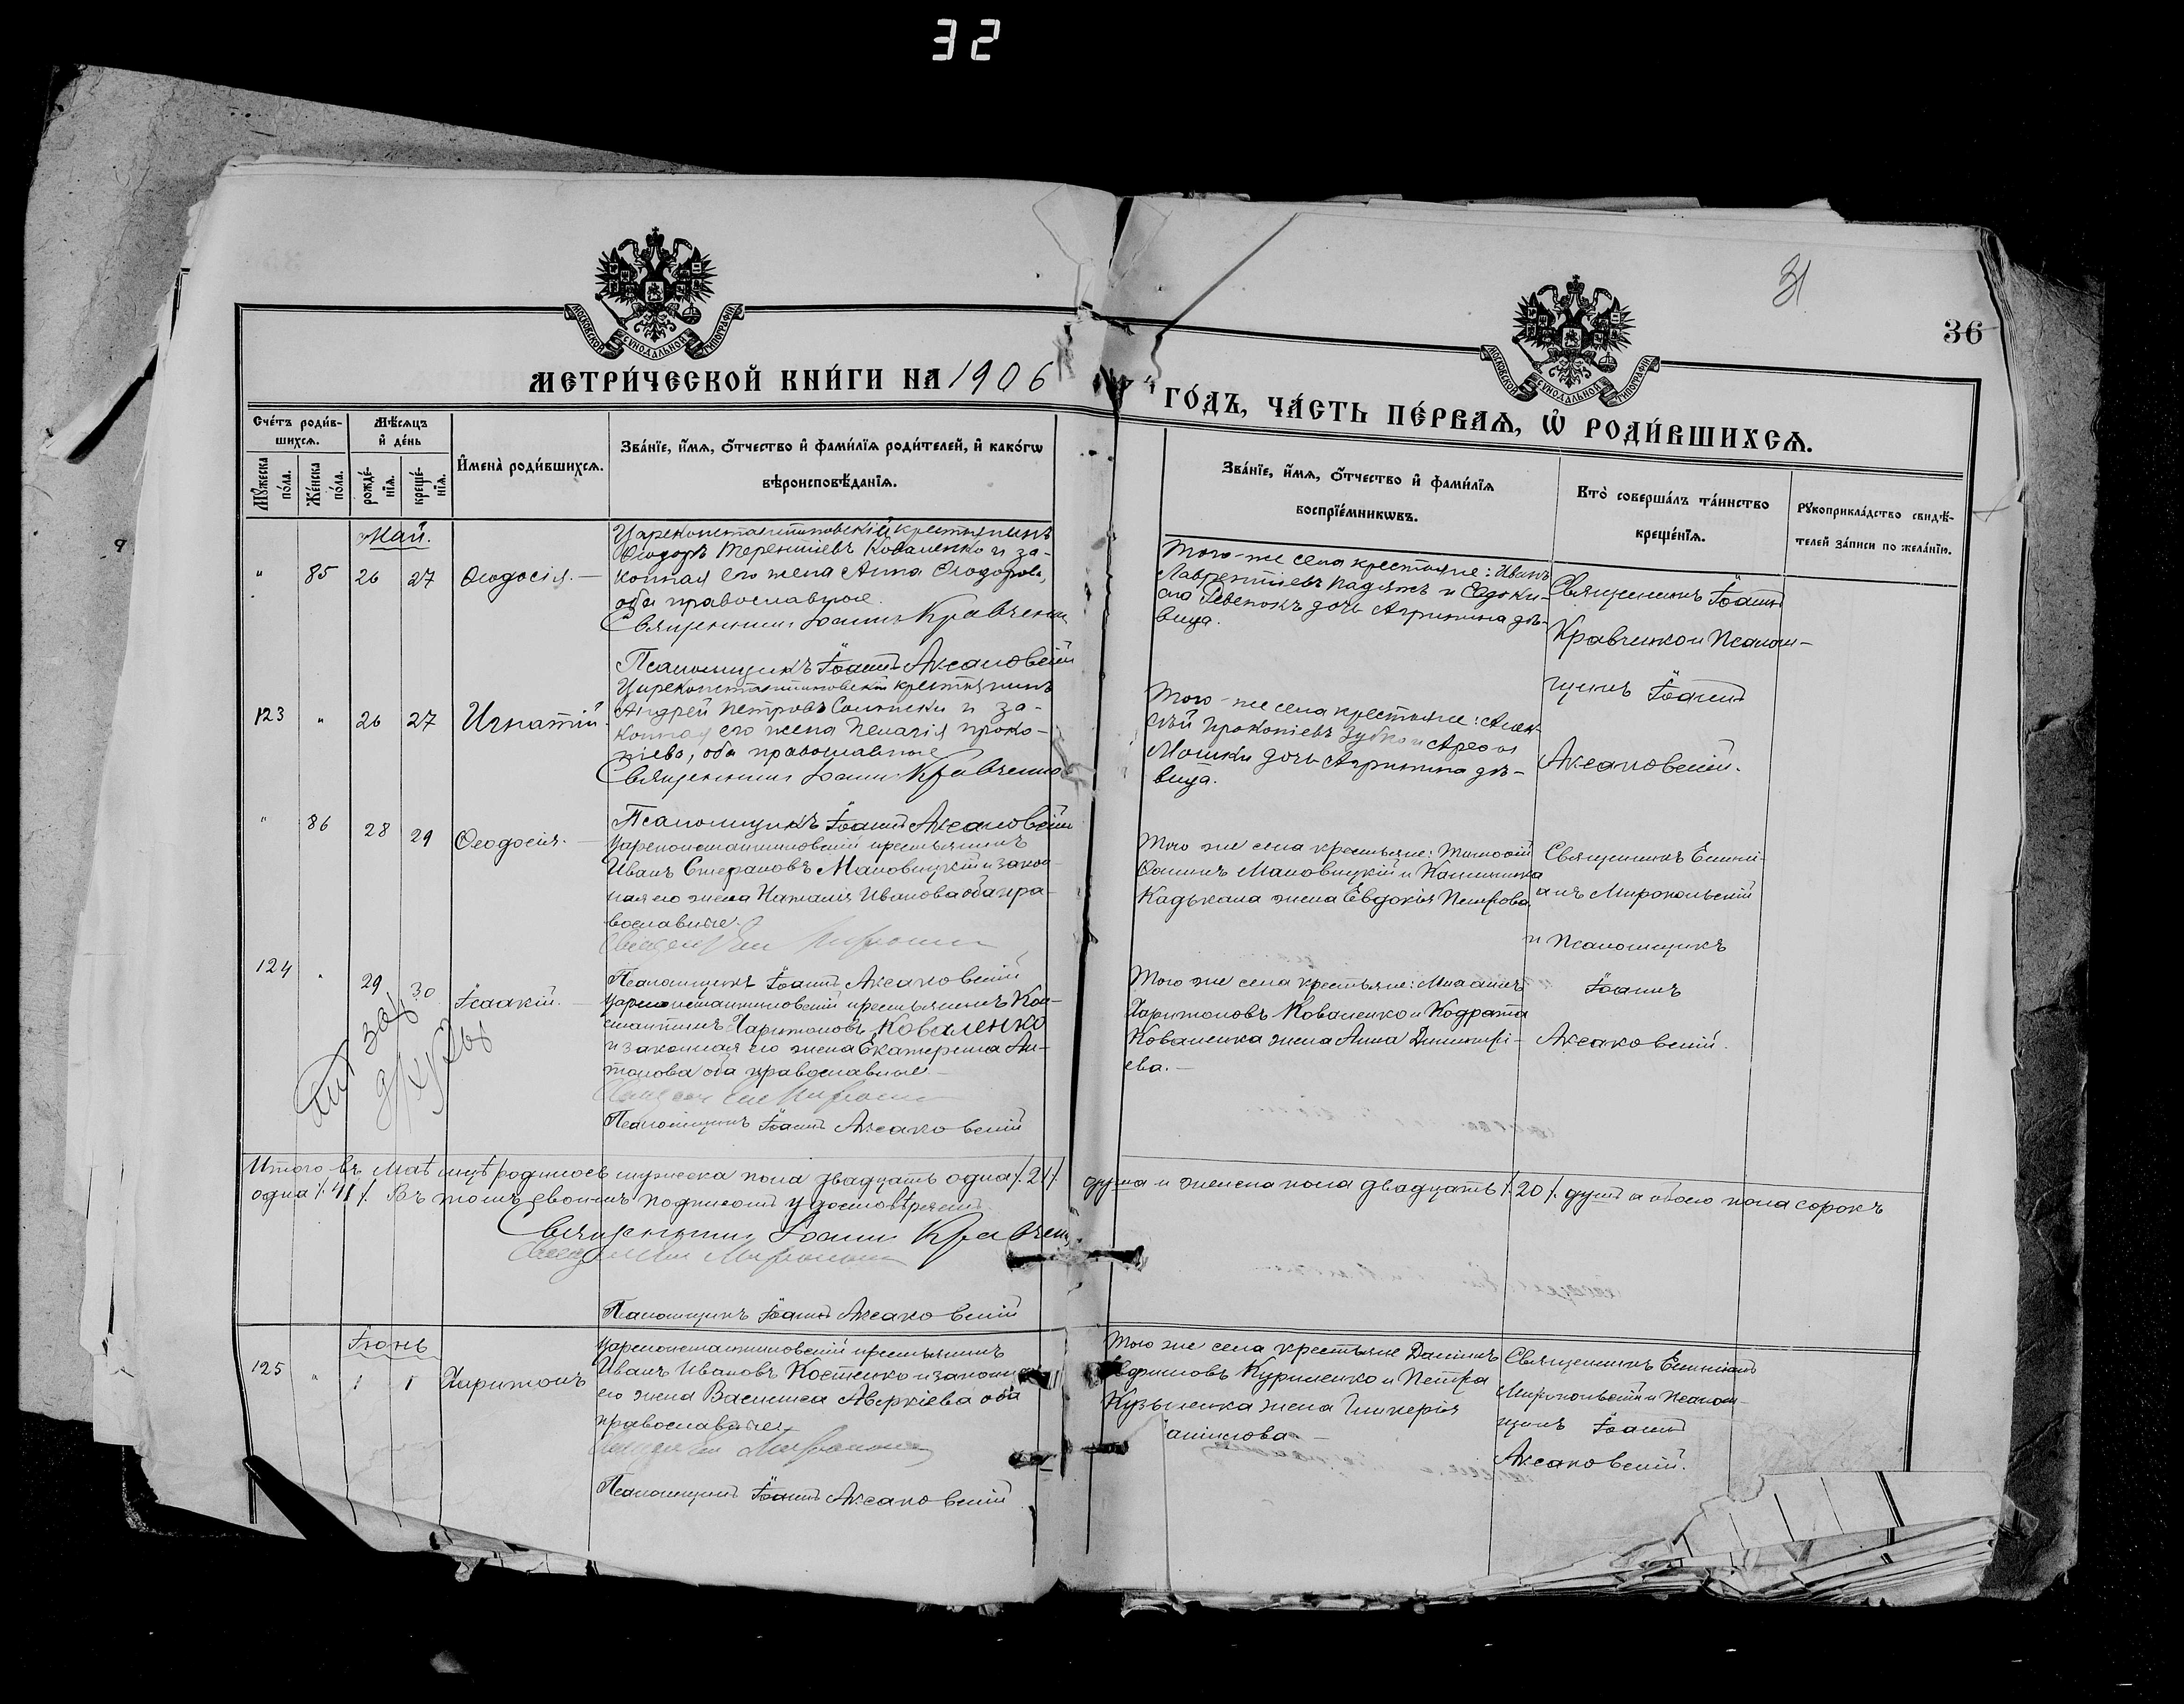 32
31
36
МОСКОВСКОЙ СУНОДАЛЬНОЙ ТИПОГРАФІИ
МОСКОВСКОЙ СУНОДАЛЬНОЙ ТИПОГРАФІИ
МЕТРИ́ЧЕСКОЙ КНИ́ГИ НА 1906
ГО́ДЪ, ЧА́СТЬ ПЕ́РВАЯ, Ѡ РОДИ́ВШИХСЯ.
Счéтъ роди́в-
шихся.
Мѣсяцъ
и҆ дéнь
Мꙋжеска
по́ла.
Жéнска
по́ла.
рождé-
нїя.
крещé-
нїя.
И҆мена̀ роди́вшихся.
Зва́нїе, и҆́мя, ѻ҆́тчество и҆ фами́лїя роди́телей, и҆ како́гѡ
вѣроисповѣ́данїя.
Зва́нїе, и҆́мя, ѻ҆́тчество и҆ фами́лїя
воспрїе́мникѡвъ.
Кто̀ соверша́лъ та́инство
крещéнїя.
Рꙋкоприкла́дство свидѣ́-
телей за́писи по жела́нїю.
Май.
" 85 26 27 Ѳеодосія.
Цареконстантиновскій крестьянинъ
Ѳеодоръ Терентіевъ Коваленко и за-
конная его жена Анна Ѳеодорова,
оба православные.
Священникъ Іоаннъ Кравченко
Псаломщикъ Іоаннъ Аксаковскій
Того-же села крестьяне: Иванъ
Лаврентіевъ Падяжъ и Евдоки-
ма Ревенокъ дочь Агрипина дѣ-
вица.
Священникъ Іоаннъ
Кравченко и Псалом-
щикъ Іоаннъ
Аксаковскій.
123 " 26 27 Игнатій
Цареконстантиновскій крестьянинъ
Андрей Петровъ и за-
конная его жена Пелагія Проко-
піева, оба православные
Священникъ Іоаннъ Кравченко
Псаломщикъ Іоаннъ Аксаковскій
Того-же села крестьяне: Алек-
сѣй Прокопіевъ Зубко и
Мошки дочь Агрипина дѣ-
вица.
" 86 28 29 Ѳеодосія.
Цареконстантиновскій крестьянинъ
Иванъ Стефановъ Мановицкій и закон-
ная его жена Наталія Иванова оба пра-
вославные.
Псаломщикъ Іоаннъ Аксаковскій
Того же села крестьяне: Тимоѳей
Ѳоминъ Мановицкій и
жена Евдокія Петрова
Священникъ Емилі-
анъ Миропольскій
и Псаломщикъ
Іоаннъ
Аксаковскій.
124 " 29 30 Ісаакій.
Цареконстантиновскій крестьянинъ Кон-
стантинъ Харитоновъ Коваленко
и законная его жена Екатерина Ан-
тонова оба православные
Псаломщикъ Іоаннъ Аксаковскій
Того же села крестьяне: Михаилъ
Харитоновъ Коваленко и Кодрата
Коваленка жена Анна Димитрі-
ева.
Итого въ маѣ мцѣ родилось мужеска пола двадцать одна /.21/. душа и женска пола двадцать /.20/. душъ а обоего пола сорокъ
одна /.41/. Въ томъ своимъ подписомъ удостовѣряемъ
Священникъ Іоаннъ Кравченко
Псаломщикъ Іоаннъ Аксаковскій
Іюнь
125 " 1 1 Харитонъ
Цареконстантиновскій крестьянинъ
Иванъ Ивановъ Костенко и законная
его жена Василиса Аверкіева оба
православные.
Псаломщикъ Іоаннъ Аксаковскій
Того же села крестьяне Даніилъ
Ефимовъ Куриленко и Петра
Кузьменка жена Гликерія
Священникъ Емиліанъ
Миропольскій и Псалом-
щикъ Іоаннъ
Аксаковскій.